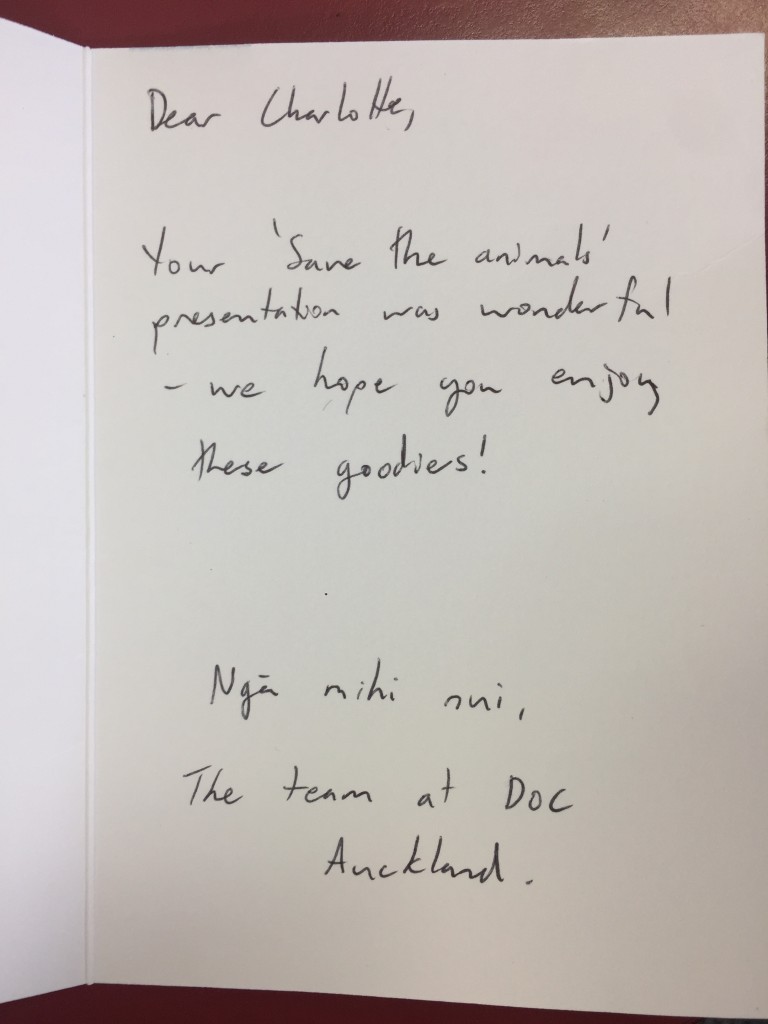 Dear Charlotte,
Your 'Save the animals'
presentation was wonderful
- we hope you enjoy
these goodies!
Ngā mihi nui,
The team at DOC
Auckland.